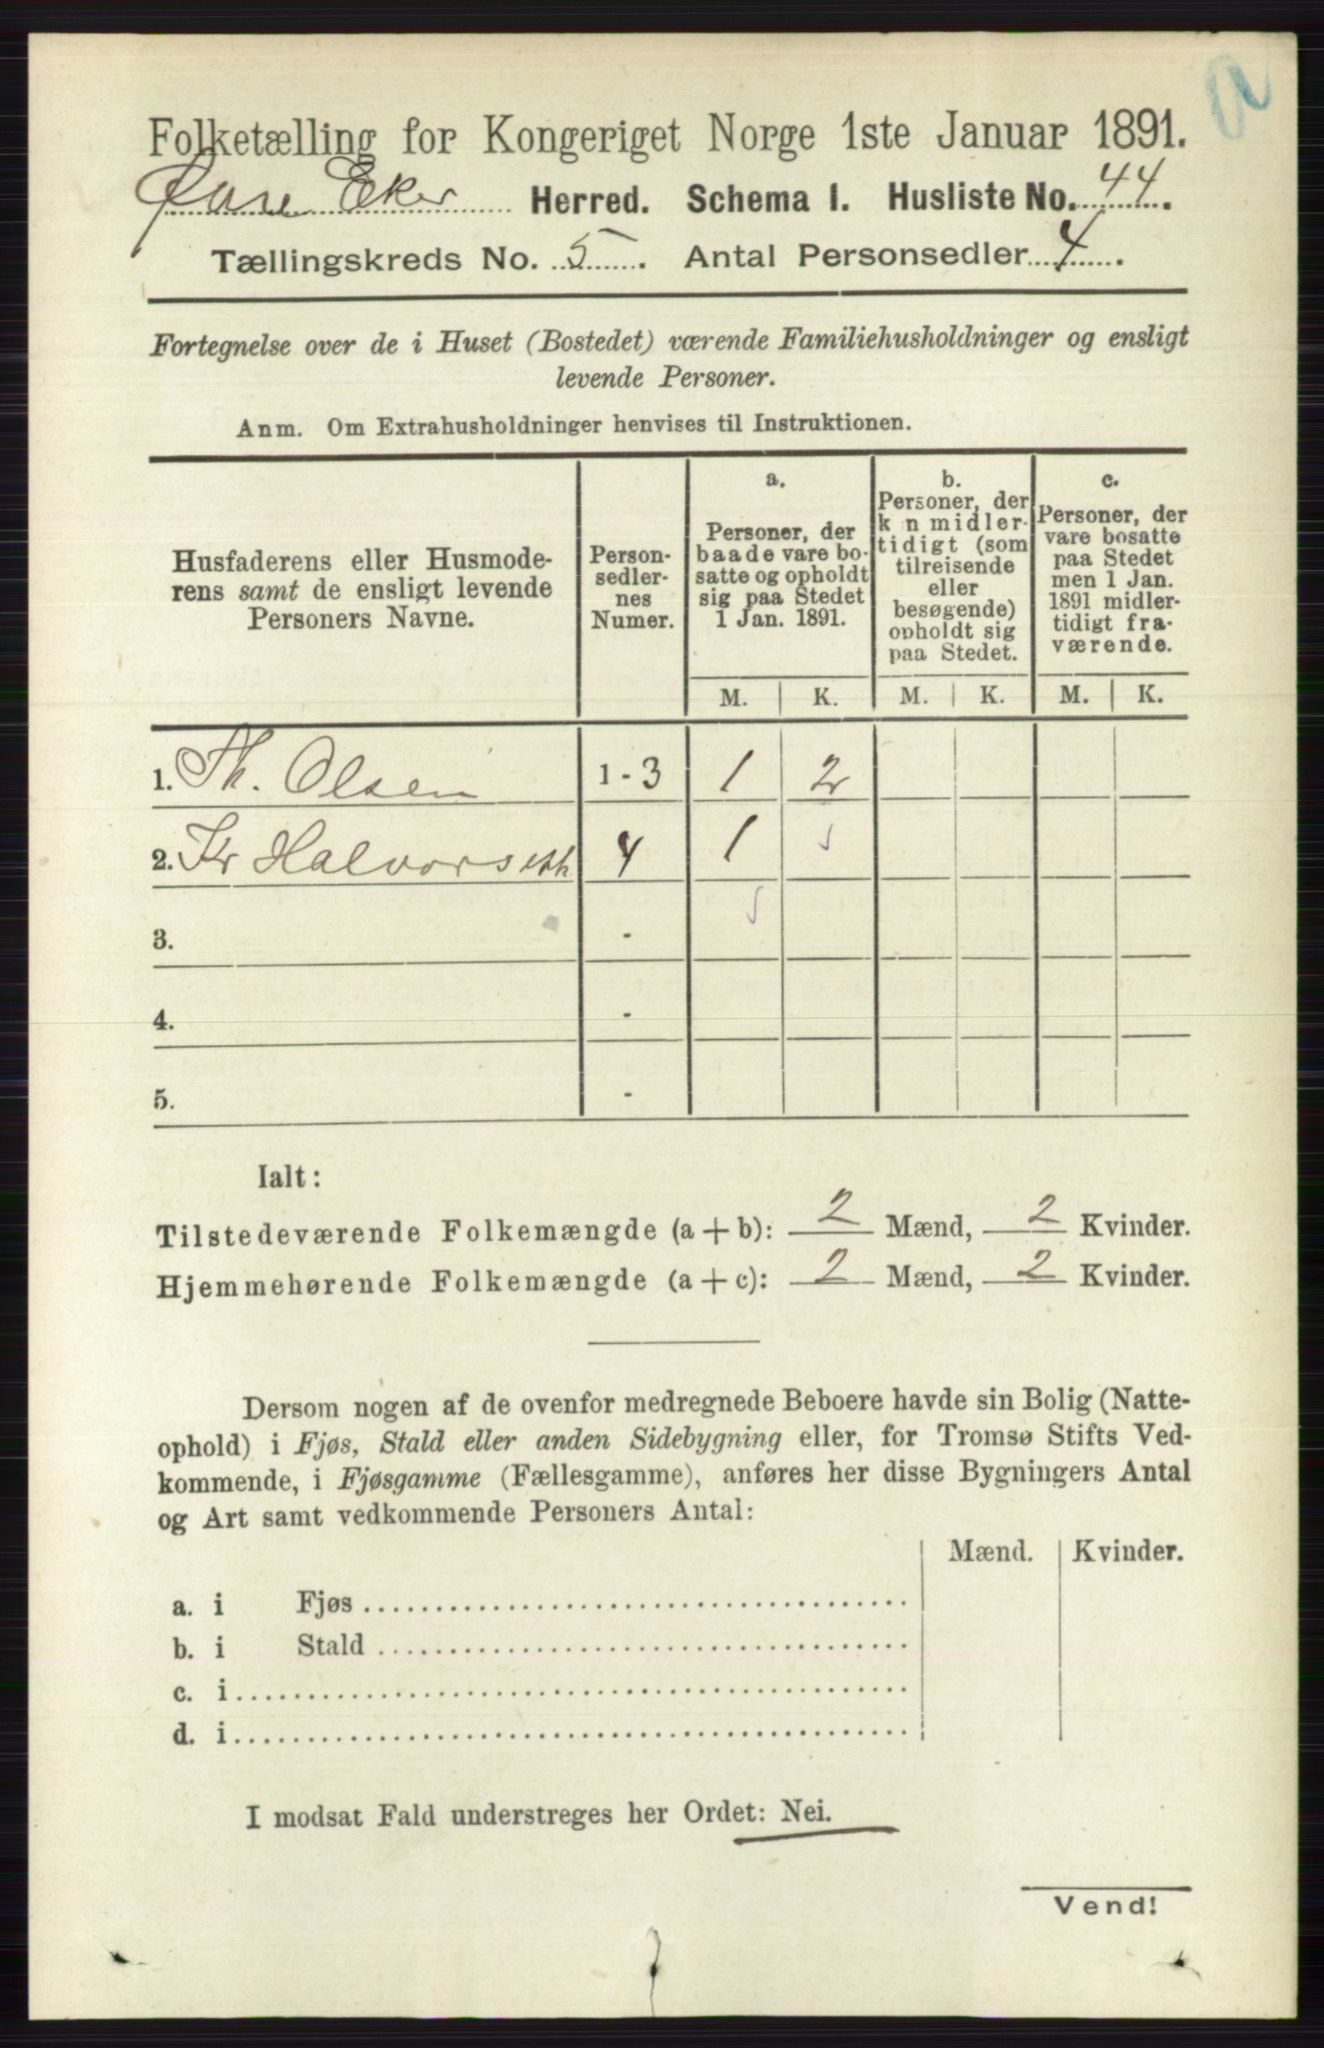 Folketælling for Kongeriget Norge 1ste Januar 1891.
Øvre Eker Herred. Schema I. Husliste No. 44.
Tællingskreds No. 5. Antal Personsedler 4.
Fortegnelse over de i Huset (Bostedet) værende Familiehusholdninger og ensligt
levende Personer.
Anm. Om Extrahusholdninger henvises til Instruktionen.
Husfaderens eller Husmode-
rens samt de ensligt levende
Personers Navne.
Person-
sedler-
nes
Numer.
a.
Personer, der
baade vare bo-
satte og opholdt
sig paa Stedet
1 Jan. 1891.
b.
Personer, der
k n midler-
tidigt (som
tilreisende
eller
besøgende)
opholdt sig
paa Stedet.
c.
Personer, der
vare bosatte
paa Stedet
men 1 Jan.
1891 midler-
tidigt fra-
værende.
M. K. M. K. M. K.
1. Th. Olsen 1 - 3 1 2
2. Kr Halvors 4 1
3. -
4. -
5. -
Ialt:
Tilstedeværende Folkemængde (a + b): 2 Mænd, 2 Kvinder.
Hjemmehørende Folkemængde (a + c): 2 Mænd, 2 Kvinder.
Dersom nogen af de ovenfor medregnede Beboere havde sin Bolig (Natte-
ophold) i Fjøs, Stald eller anden Sidebygning eller, for Tromsø Stifts Ved-
kommende, i Fjøsgamme (Fællesgamme), anføres her disse Bygningers Antal
og Art samt vedkommende Personers Antal:
Mænd. Kvinder.
a. i Fjøs
b. i Stald
c. i
d. i
I modsat Fald understreges her Ordet: Nei.
Vend!